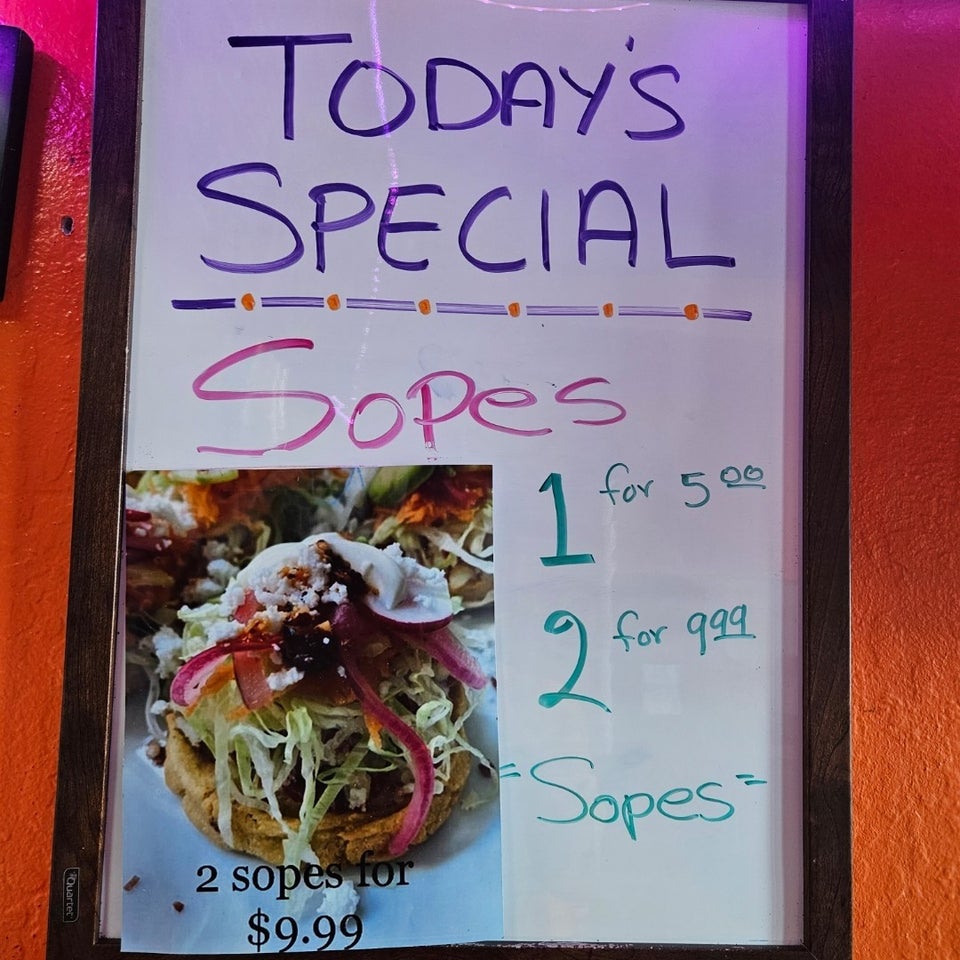 TODAY'S
SPECIAL
Sopes
1 for 5 00
2 for 9 99
=Sopes=
2 sopes for
$9.99
Quartet